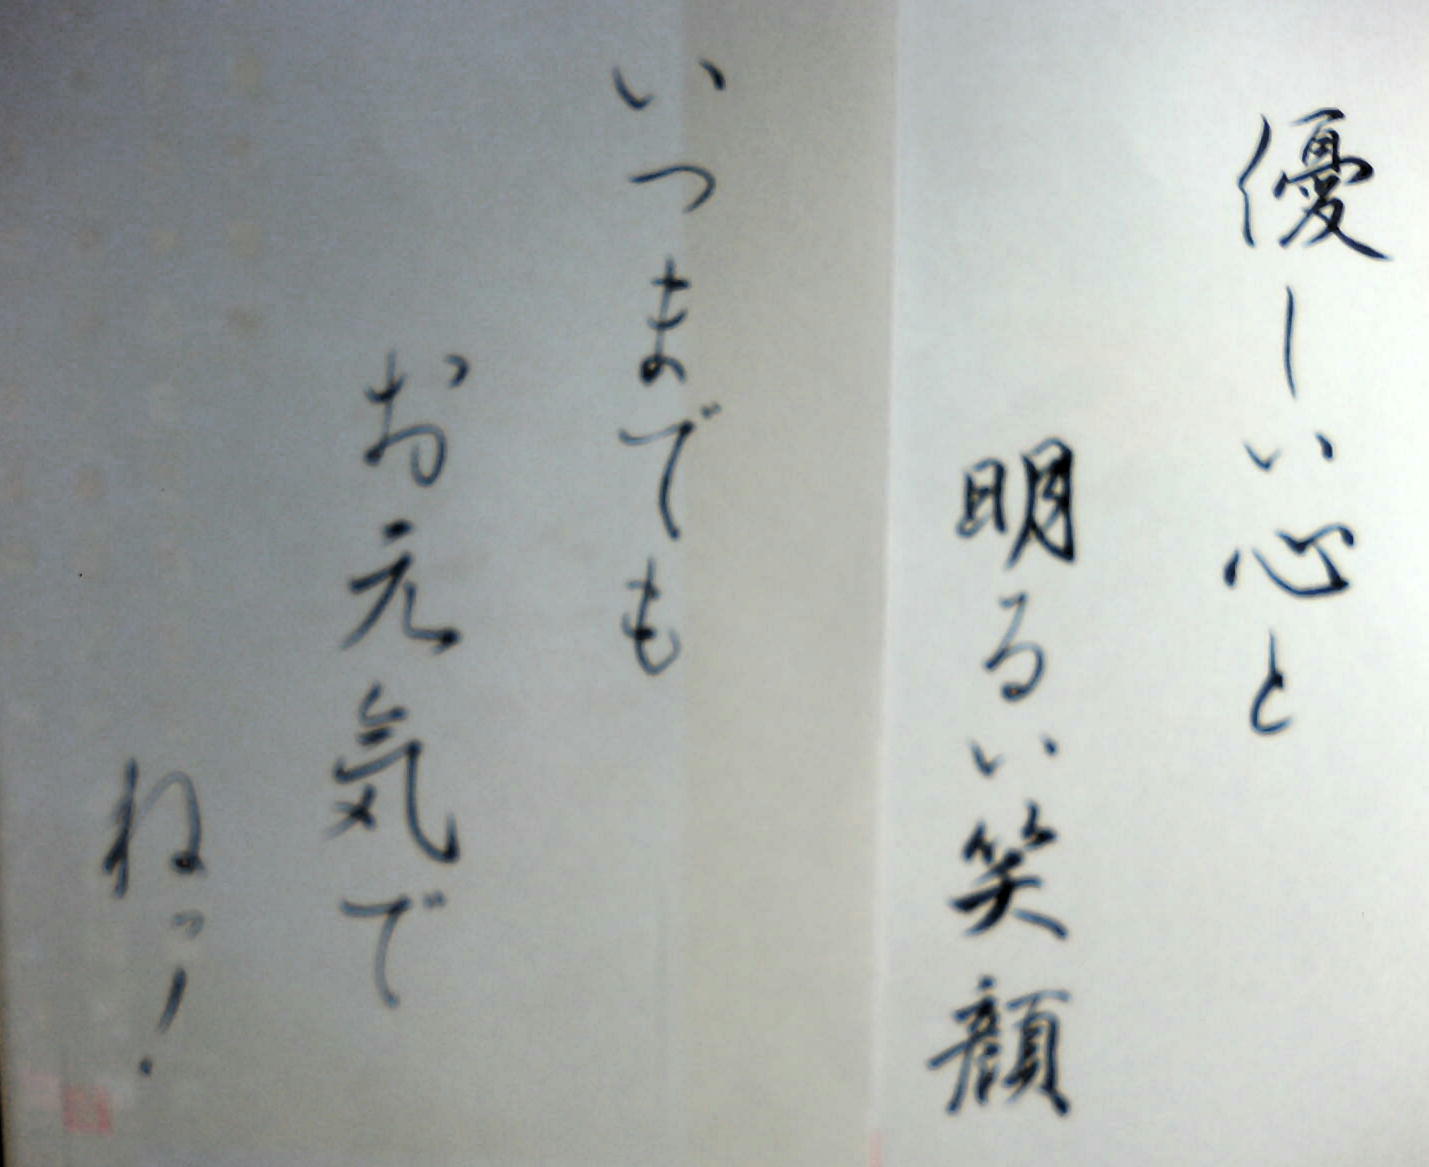 優しい心と
明るい笑顔
いつまでも
お元気で
ねっ!